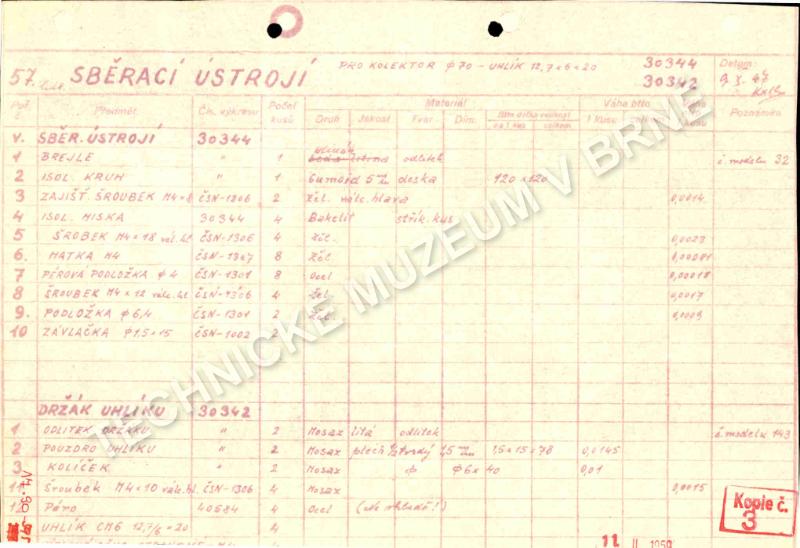 57. SBĚRACÍ ÚSTROJÍ PRO KOLEKTOR φ70 - UHLÍK 12,7×6×20 30344 Datum:
30342
Poř. č. Předmět Čís. výkresu Počet kusů Materiál Váha btto Poznámka
Druh Jakost Tvar Dim. na 1 kus celkem 1 kusu
V. SBĚR. ÚSTROJÍ 30344
1 BREJLE " 1 odlitek č. modelu 32
2 ISOL. KRUH " 1 Gumoid 5 mm deska 120×120
3 ZAJIŠŤ. ŠROUBEK M4×8 ČSN-1306 2 Žel. válc. hlava 0,0014
4 ISOL. MISKA 30344 4 Bakelit střík. kus
5 ŠROBEK M4×18 vál. hl ČSN-1306 4 Žel. 0,0023
6. MATKA M4 8 Žel.
7 PÉROVÁ PODLOŽKA φ4 ČSN-1301 8 Ocel 0,00018
8 ŠROUBEK M4×12 válc. hl ČSN-1306 4 Žel. 0,0017
9. PODLOŽKA φ6,4 ČSN-1301 2 Žel. 0,0009
10 ZÁVLAČKA φ1,5×15 ČSN-1002 2
DRŽÁK UHLÍKU 30342
1 ODLITEK DRŽÁKU " 2 Mosaz litá odlitek č. modelu 143
2 POUZDRO UHLÍKU " 2 Mosaz plech ½ tvrdý 1,5 mm 1,5×15×78 0,0145
3. KOLÍČEK " 2 Mosaz φ φ6×40 0,01
11 Šroubek M4×10 válc. hl. ČSN-1306 4 Mosaz 0,0015
12 Péro 40584 4 Ocel
UHLÍK CM6 12,7/6×20 4
Kopie č.
3
11 II 1959
TECHNICKÉ MUZEUM V BRNĚ